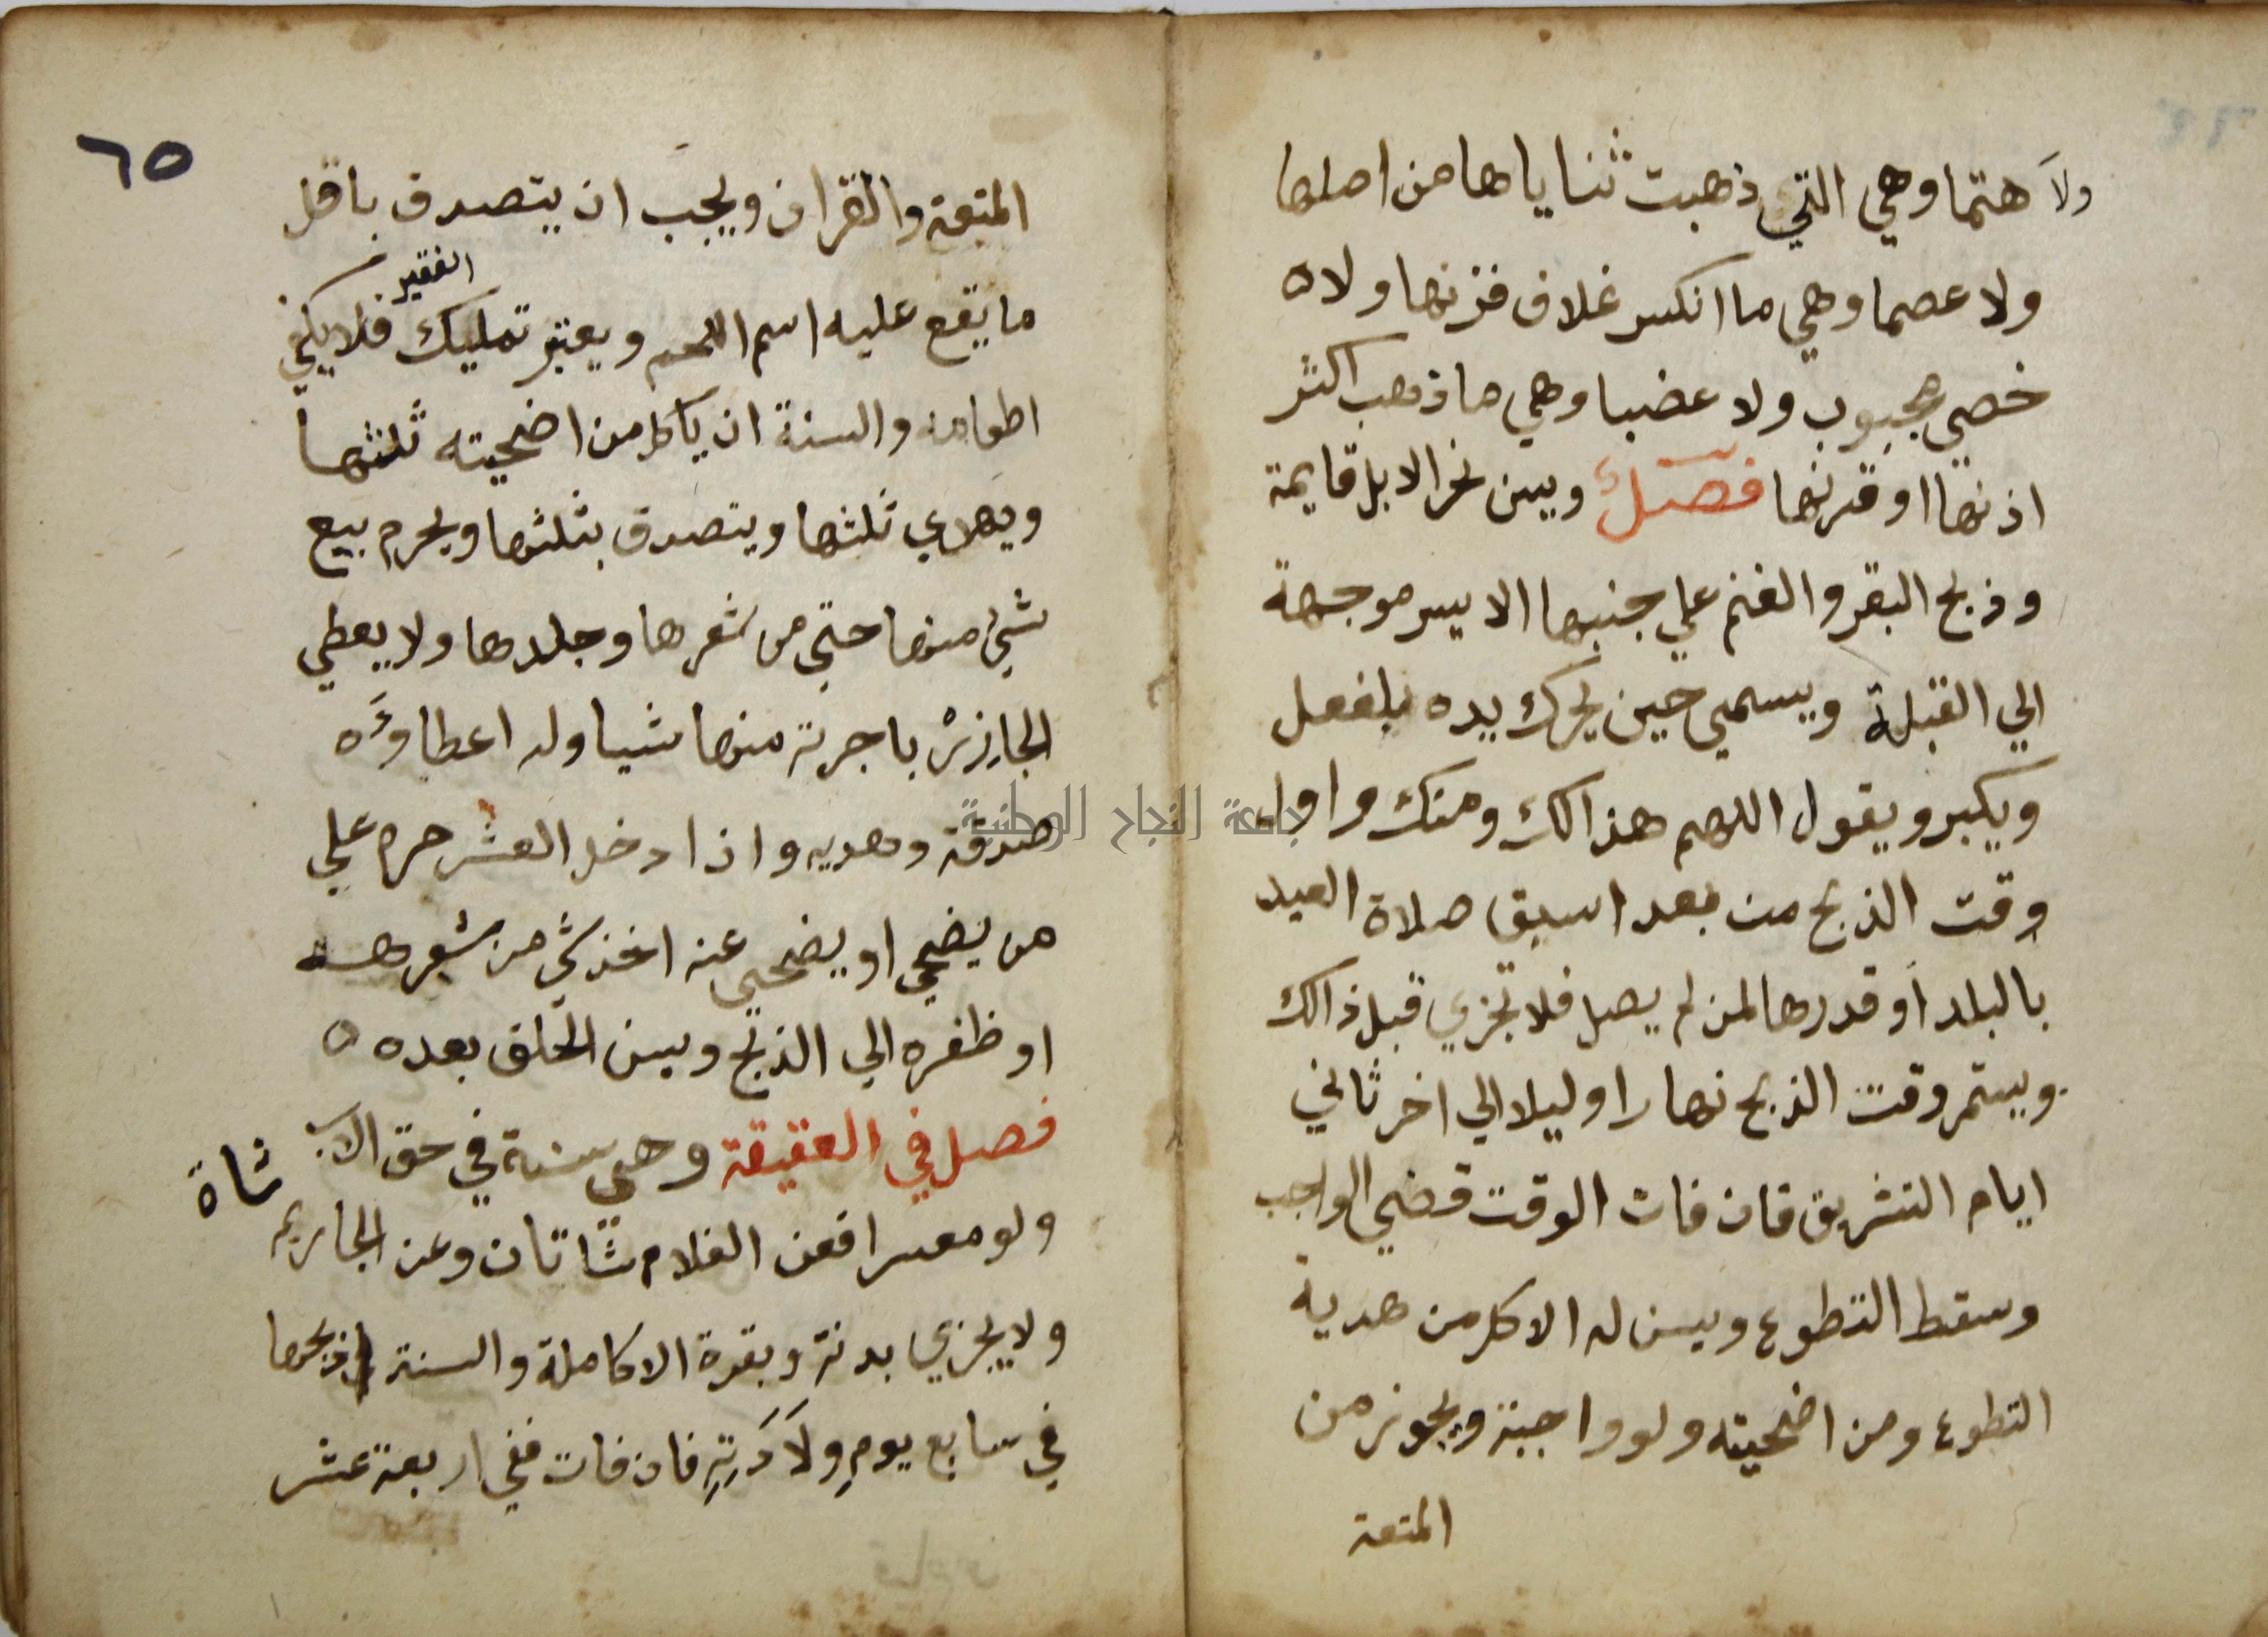 ولا هتما وهي التي ذهبت ثناياها من اصلها
ولا عصما وهي ما انكسر غلاف قرنها ولا
خصي مجبوب ولا عضبا وهي ما ذهب اكثر
اذنها او قرنها فصل ويسن نحر الابل قايمة
وذبح البقر والغنم علي جنبها الايسر موجهة
الي القبلة ويسمي حين يحرك يده بالفعل
ويكبر ويقول اللهم هذا لك ومنك واول
وقت الذبح من بعد اسبق صلاة العيد
بالبلد او قدرها لمن لم يصل فلا تجزي قبل ذالك
ويستمر وقت الذبح نهارا وليلا الي اخر ثاني
ايام التشريق فان فات الوقت قضي الواجب
وسقط التطوع ويسن له الاكل من هدية
التطوع ومن اضحيته ولو واجبة ويجوز من
المتعة
٦٥
المتعة والقران ويجب ان يتصدق باقل
ما يقع عليه اسم اللحم ويعتبر تمليك الفقير فلا يكفي
اطعامه والسنة ان ياكل من اضحيته ثلثها
ويهدي ثلثها ويتصدق بثلثها ويحرم بيع
شي منها حتي من شعرها وجلدها ولا يعطي
الجازر باجرته منها شيا وله اعطاؤه
صدقة وهديه واذا دخل العشر حرم علي
من يضحي او يضحي عنه اخذ شي من شعره
او ظفره الي الذبح ويسن الحلق بعده ه
فصل في العقيقة وهي سنة في حق الاب
ولو معسرا فعن الغلام شاتان وعن الجاريه شاة
ولا يجزي بدنة وبقرة الا كاملة والسنة ذبحها
في سابع يوم ولادته فان فات ففي اربعة عشر
جامعة النجاح الوطنية